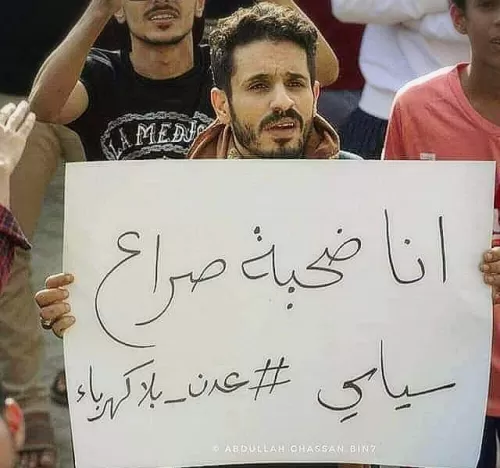 LA MEDJ
انا ضحية صراع
سياسي #عدن_بلا كهرباء
© ABDULLAH GHASSAN.BIN7